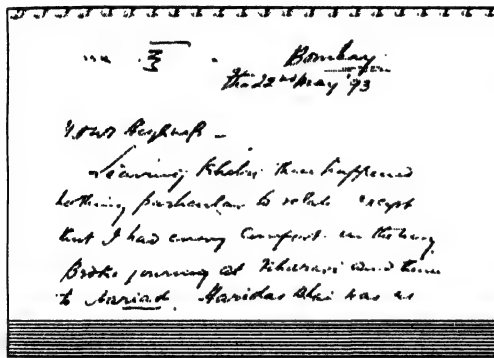 Bombay
The 22nd May '93
Your Highness –
Leaving Khetri there happened
nothing particular to relate except
that I had every comfort on the way
Broke journey at Kharari and then
to Nariad. Haridas Bhai was as